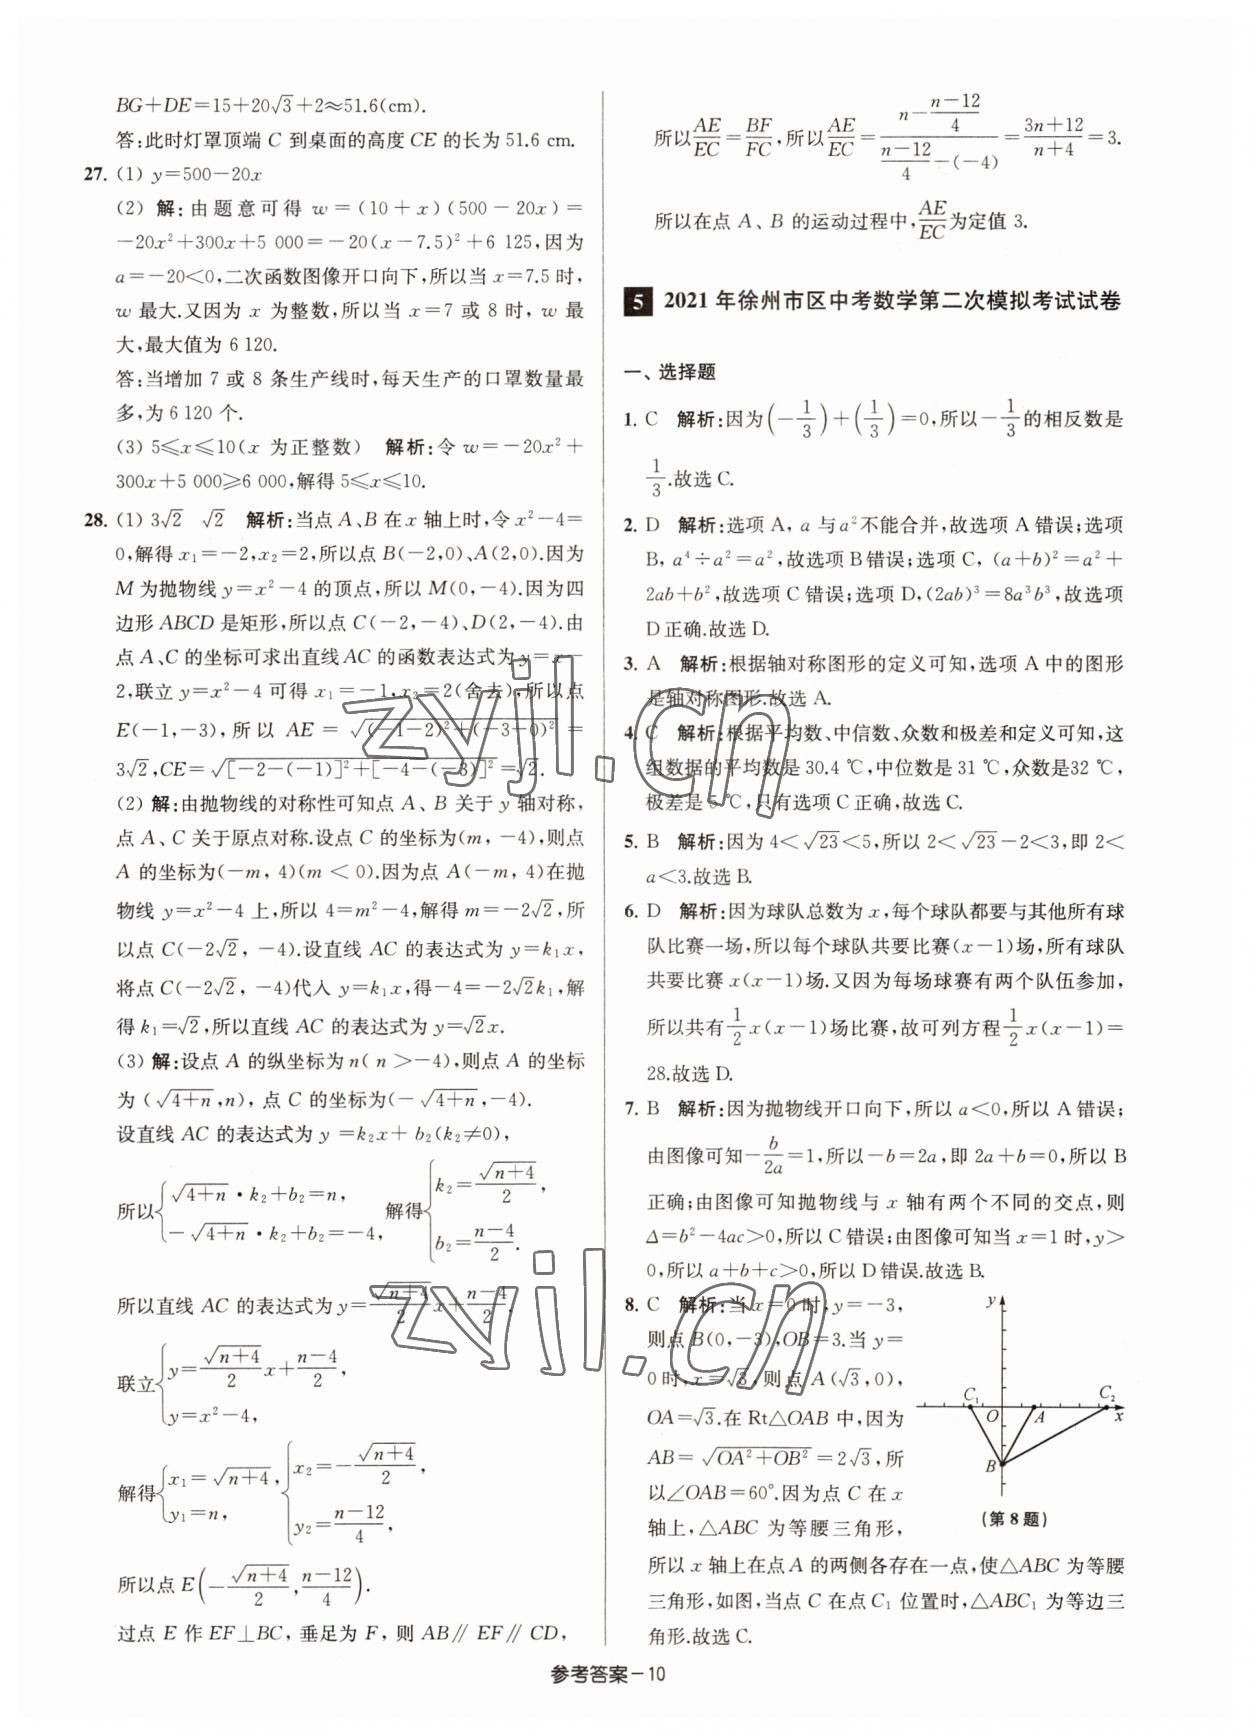 BG+DE=15+20√3+2≈51.6(cm).
答:此时灯罩顶端 C 到桌面的高度 CE 的长为 51.6 cm.
27. (1) y=500-20x
(2) 解:由题意可得 w=(10+x)(500-20x)=
-20x²+300x+5 000=-20(x-7.5)²+6 125,因为
a=-20<0,二次函数图像开口向下,所以当 x=7.5 时,
w 最大.又因为 x 为整数,所以当 x=7 或 8 时, w 最
大,最大值为 6 120.
答:当增加 7 或 8 条生产线时,每天生产的口罩数量最
多,为 6 120 个.
(3) 5≤x≤10(x 为正整数) 解析:令 w=-20x²+
300x+5 000≥6 000,解得 5≤x≤10.
28. (1) 3√2 √2 解析:当点 A、B 在 x 轴上时,令 x²-4=
0,解得 x₁=-2,x₂=2,所以点 B(-2,0)、A(2,0).因为
M 为抛物线 y=x²-4 的顶点,所以 M(0,-4).因为四
边形 ABCD 是矩形,所以点 C(-2,-4)、D(2,-4).由
点 A、C 的坐标可求出直线 AC 的函数表达式为 y=x-
2,联立 y=x²-4 可得 x₁=-1,x₂=2(舍去),所以点
E(-1,-3),所以 AE=√((-1-2)²+(-3-0)²)=
3√2,CE=√([-2-(-1)]²+[-4-(-3)]²)=√2.
(2) 解:由抛物线的对称性可知点 A、B 关于 y 轴对称,
点 A、C 关于原点对称.设点 C 的坐标为(m,-4),则点
A 的坐标为(-m,4)(m<0).因为点 A(-m,4)在抛
物线 y=x²-4 上,所以 4=m²-4,解得 m=-2√2,所
以点 C(-2√2,-4).设直线 AC 的表达式为 y=k₁x,
将点 C(-2√2,-4)代入 y=k₁x,得-4=-2√2k₁,解
得 k₁=√2,所以直线 AC 的表达式为 y=√2x.
(3) 解:设点 A 的纵坐标为 n(n>-4),则点 A 的坐标
为(√(4+n),n),点 C 的坐标为(-√(4+n),-4).
设直线 AC 的表达式为 y=k₂x+b₂(k₂≠0),
所以{√(4+n)·k₂+b₂=n, -√(4+n)·k₂+b₂=-4, 解得{k₂=√(n+4)/2, b₂=(n-4)/2.
所以直线 AC 的表达式为 y=√(n+4)/2 x+(n-4)/2.
联立{y=√(n+4)/2 x+(n-4)/2, y=x²-4,
解得{x₁=√(n+4), y₁=n, {x₂=-√(n+4)/2, y₂=(n-12)/4,
所以点 E(-√(n+4)/2,(n-12)/4).
过点 E 作 EF⊥BC,垂足为 F,则 AB∥EF∥CD,
所以AE/EC=BF/FC,所以AE/EC=(n-(n-12)/4)/((n-12)/4-(-4))=(3n+12)/(n+4)=3.
所以在点 A、B 的运动过程中,AE/EC为定值 3.
5 2021 年徐州市区中考数学第二次模拟考试试卷
一、选择题
1. C 解析:因为(-1/3)+(1/3)=0,所以-1/3的相反数是
1/3.故选 C.
2. D 解析:选项 A, a 与 a²不能合并,故选项 A 错误;选项
B, a⁴÷a²=a²,故选项 B 错误;选项 C, (a+b)²=a²+
2ab+b²,故选项 C 错误;选项 D,(2ab)³=8a³b³,故选项
D 正确.故选 D.
3. A 解析:根据轴对称图形的定义可知,选项 A 中的图形
是轴对称图形.故选 A.
4. C 解析:根据平均数、中信数、众数和极差和定义可知,这
组数据的平均数是 30.4 ℃,中位数是 31 ℃,众数是32 ℃,
极差是 5 ℃,只有选项 C 正确,故选 C.
5. B 解析:因为 4<√23<5,所以 2<√23-2<3,即 2<
a<3.故选 B.
6. D 解析:因为球队总数为 x,每个球队都要与其他所有球
队比赛一场,所以每个球队共要比赛(x-1)场,所有球队
共要比赛 x(x-1)场.又因为每场球赛有两个队伍参加,
所以共有1/2x(x-1)场比赛,故可列方程1/2x(x-1)=
28.故选 D.
7. B 解析:因为抛物线开口向下,所以 a<0,所以 A 错误;
由图像可知-b/2a=1,所以-b=2a,即 2a+b=0,所以 B
正确;由图像可知抛物线与 x 轴有两个不同的交点,则
Δ=b²-4ac>0,所以 C 错误;由图像可知当 x=1 时,y>
0,所以 a+b+c>0,所以 D 错误.故选 B.
8. C 解析:当 x=0 时,y=-3,
则点 B(0,-3),OB=3.当 y=
0时,x=√3,则点 A(√3,0),
OA=√3.在 Rt△OAB 中,因为
AB=√(OA²+OB²)=2√3,所
以∠OAB=60°.因为点 C 在 x
轴上,△ABC 为等腰三角形,
y
C₁ O A C₂ x
B
(第 8 题)
所以 x 轴上在点 A 的两侧各存在一点,使△ABC 为等腰
三角形,如图,当点 C 在点 C₁ 位置时,△ABC₁ 为等边三
角形.故选 C.
参考答案-10
zyjl.cn
zyjl.cn